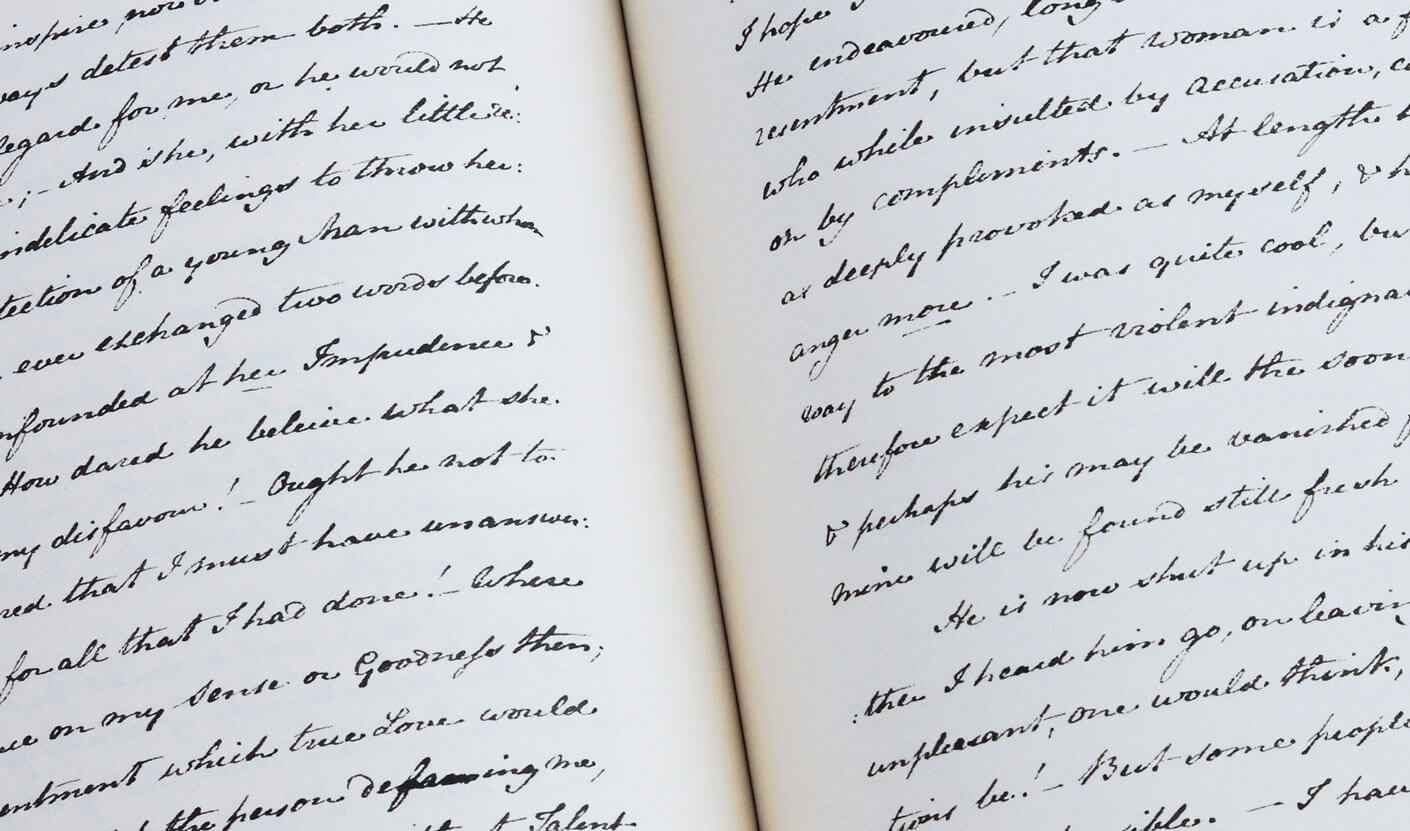 inspire now
ways detest them both. — He
regard for me, or he would not
; — And she, with her little re:
indelicate feelings to throw her:
tection of a young Man with whom
ever exchanged two words before.
nfounded at her Impudence &
How dared he beleive what she
my disfavour! — Ought he not to
red that I must have unanswer:
for all that I had done! — Where
ue on my sense or Goodness then;
entment which true Love would
the person defaming me,
Talent
I hope
He endeavoured, long
resentment, but that woman is a f
who while insulted by accusation, c
on by compliments. — At length
as deeply provoked as myself, & h
anger more. — I was quite cool, bu
way to the most violent indigna
therefore expect it will the soon
& perhaps his may be vanished f
mine will be found still fresh
He is now shut up in his
:ther I heard him go, on leavin
unpleasant, one would think,
tions be! — But some people
sible. — I hav